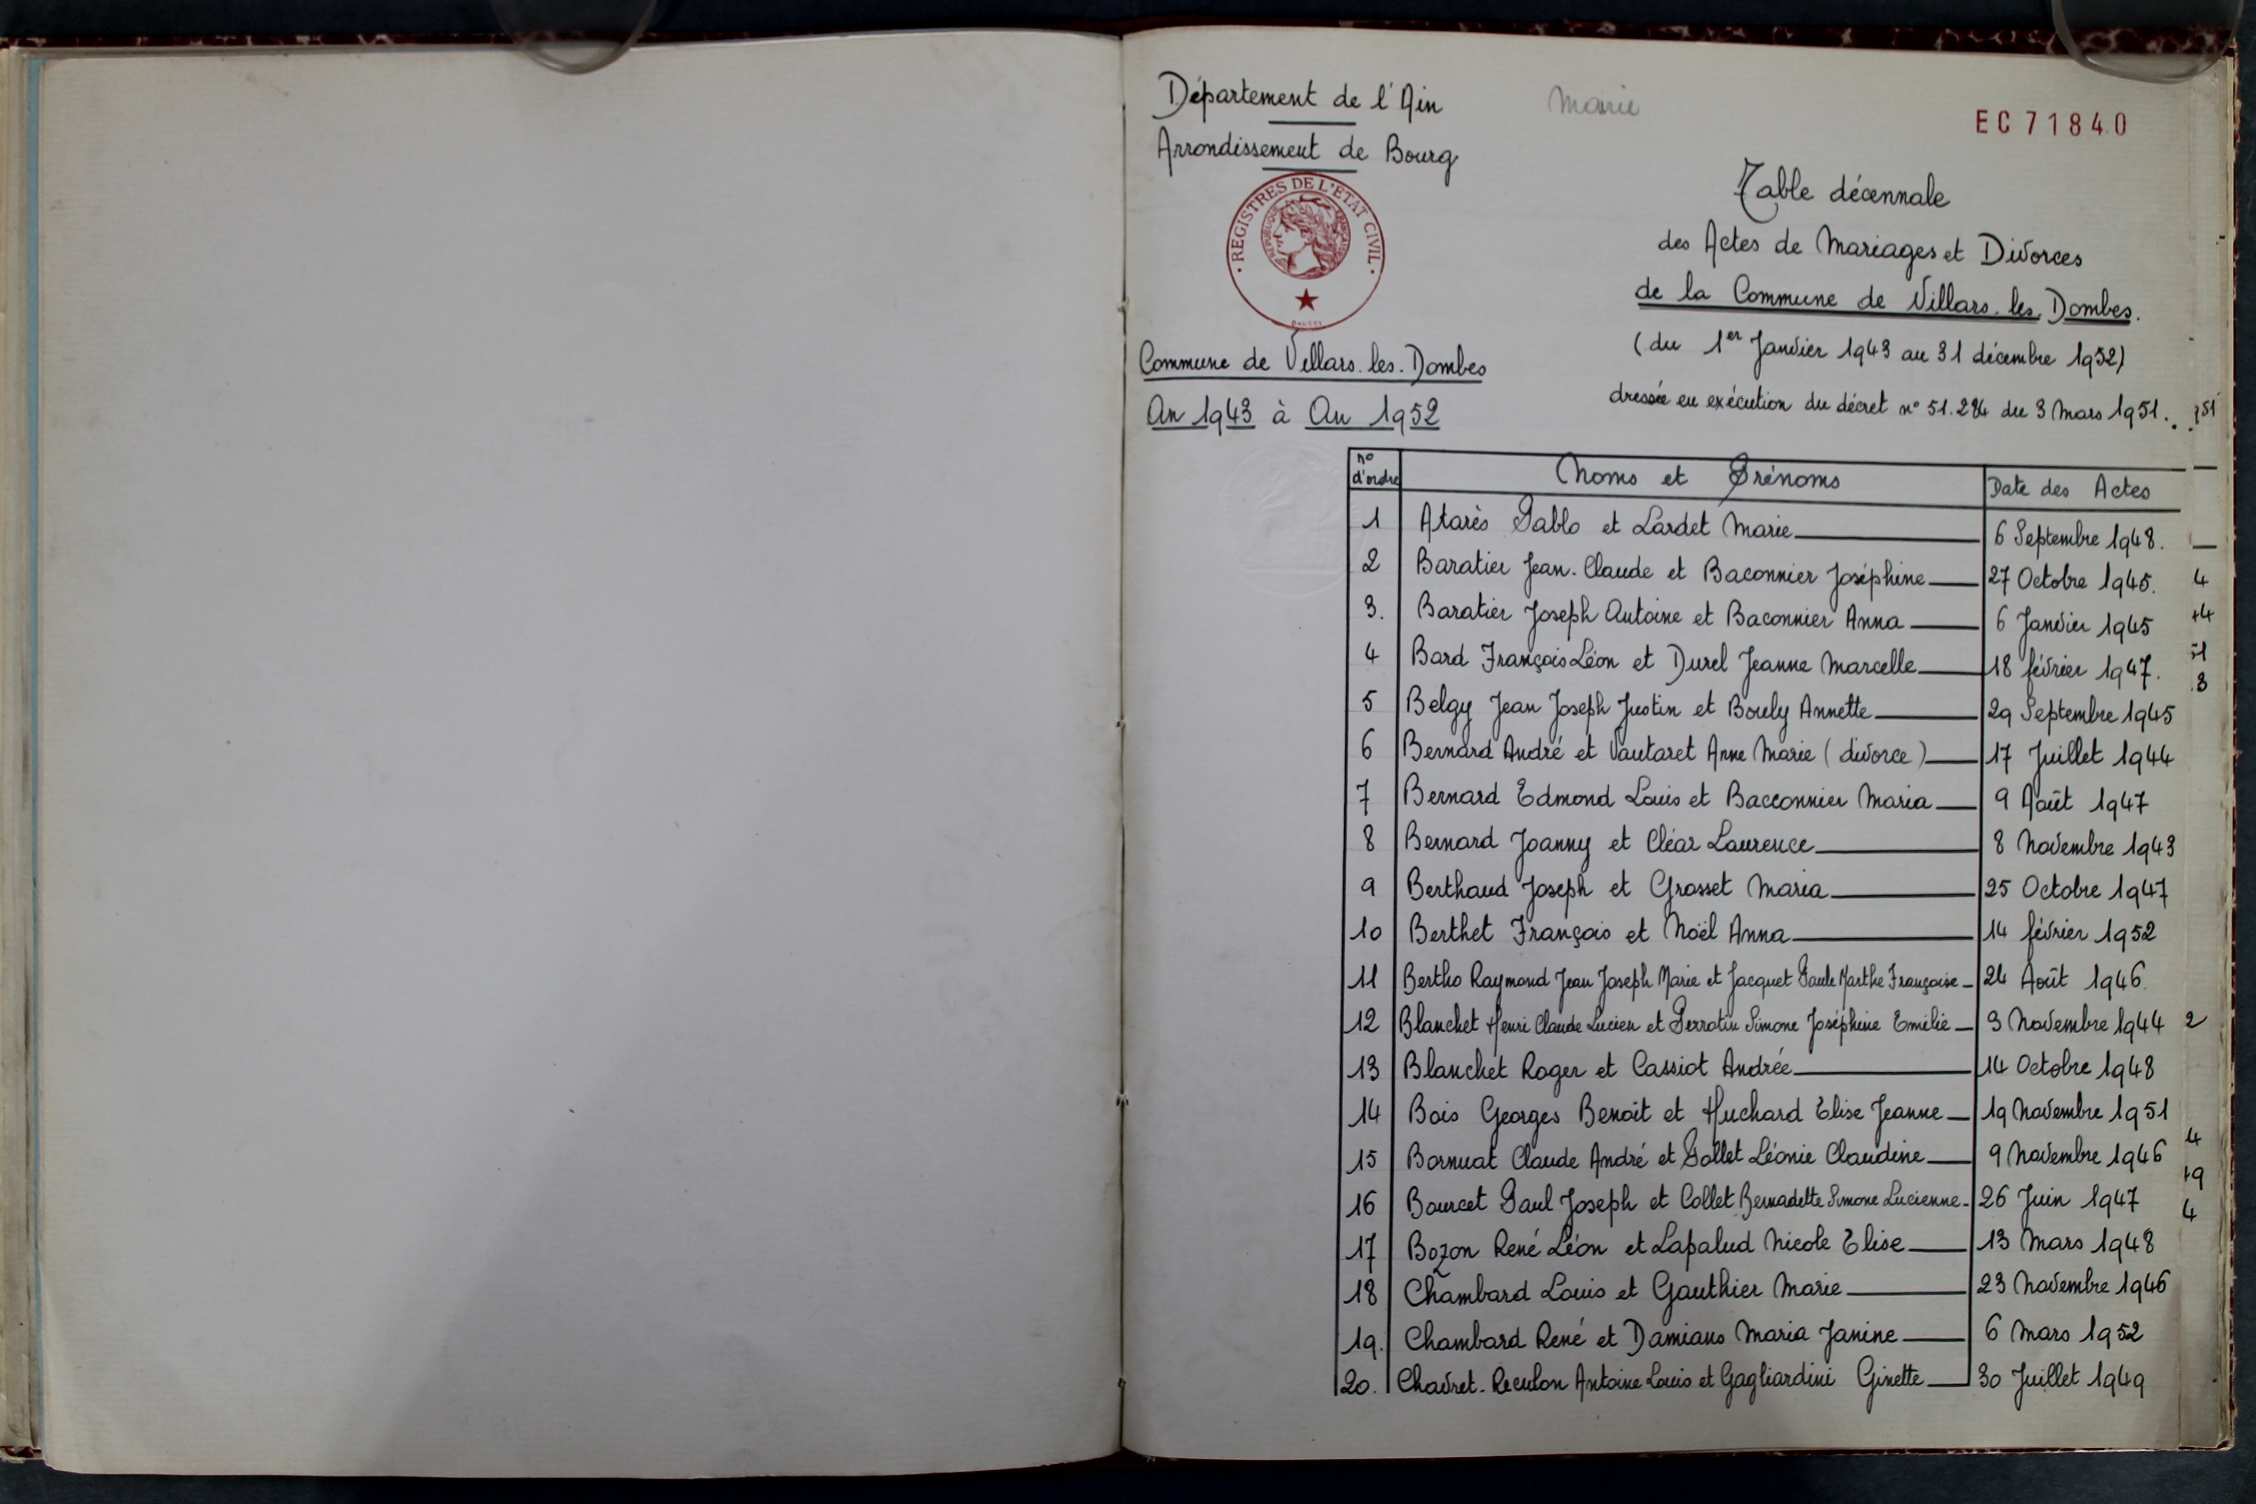 Département de l'Ain
Mairie
EC 71840
Arrondissement de Bourg
REGISTRES DE L'ETAT CIVIL
Table décennale
des Actes de Mariages et Divorces
de la Commune de Villars.les.Dombes.
(du 1er Janvier 1943 au 31 décembre 1952)
dressée en exécution du décret n° 51.284 du 3 Mars 1951.
Commune de Villars.les.Dombes
An 1943 à An 1952
n° d'ordre Noms et Prénoms Date des Actes
1 Atarès Pablo et Lardet Marie 6 Septembre 1948.
2 Baratier Jean.Claude et Baconnier Joséphine 27 Octobre 1945.
3. Baratier Joseph Antoine et Baconnier Anna 6 Janvier 1945
4 Bard François Léon et Durel Jeanne Marcelle 18 février 1947.
5 Belgy Jean Joseph Justin et Bouly Annette 29 Septembre 1945
6 Bernard André et Vautaret Anne Marie (divorce) 17 Juillet 1944
7 Bernard Edmond Louis et Bacconnier Maria 9 Août 1947
8 Bernard Joanny et Cléar Laurence 8 Novembre 1943
9 Berthaud Joseph et Grosset Maria 25 Octobre 1947
10 Berthet François et Noël Anna 14 février 1952
11 Bertho Raymond Jean Joseph Marie et Jacquet Paule Marthe Françoise 24 Août 1946.
12 Blanchet Henri Claude Lucien et Perratin Simone Joséphine Emilie 3 Novembre 1944
13 Blanchet Roger et Cassiot Andrée 14 Octobre 1948
14 Bois Georges Benoit et Huchard Elise Jeanne 19 Novembre 1951
15 Bornuat Claude André et Pollet Léonie Claudine 9 Novembre 1946
16 Bourcet Paul Joseph et Collet Bernadette Simone Lucienne 26 Juin 1947
17 Bozon René Léon et Lapalud Nicole Elise 13 Mars 1948
18 Chambard Louis et Gauthier Marie 23 Novembre 1946
19. Chambard René et Damians Maria Janine 6 Mars 1952
20. Chavret.Reculon Antoine Louis et Gagliardini Ginette 30 Juillet 1949